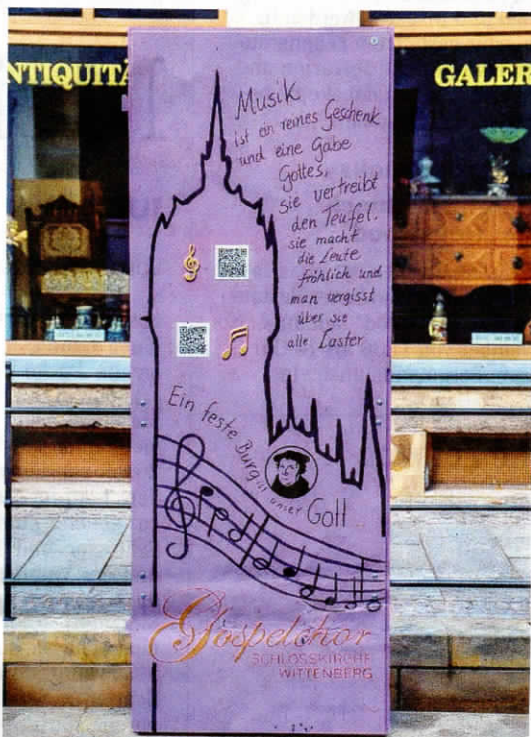 NTIQUITÄ
GALER
Musik
ist ein reines Geschenk
und eine Gabe
Gottes,
sie vertreibt
den Teufel.
sie macht
die Leute
fröhlich und
man vergisst
über sie
alle Laster
Ein feste Burg ist unser Gott
Gospelchor
SCHLOSSKIRCHE
WITTENBERG